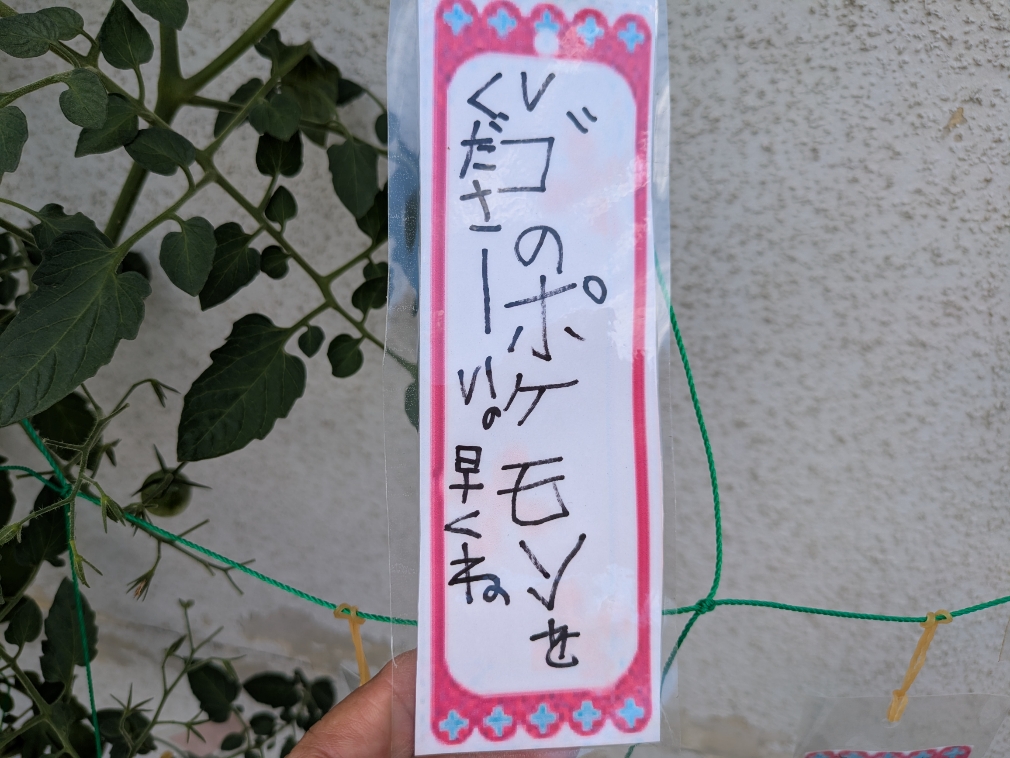 レゴのポケモンを
くださーい。早くね